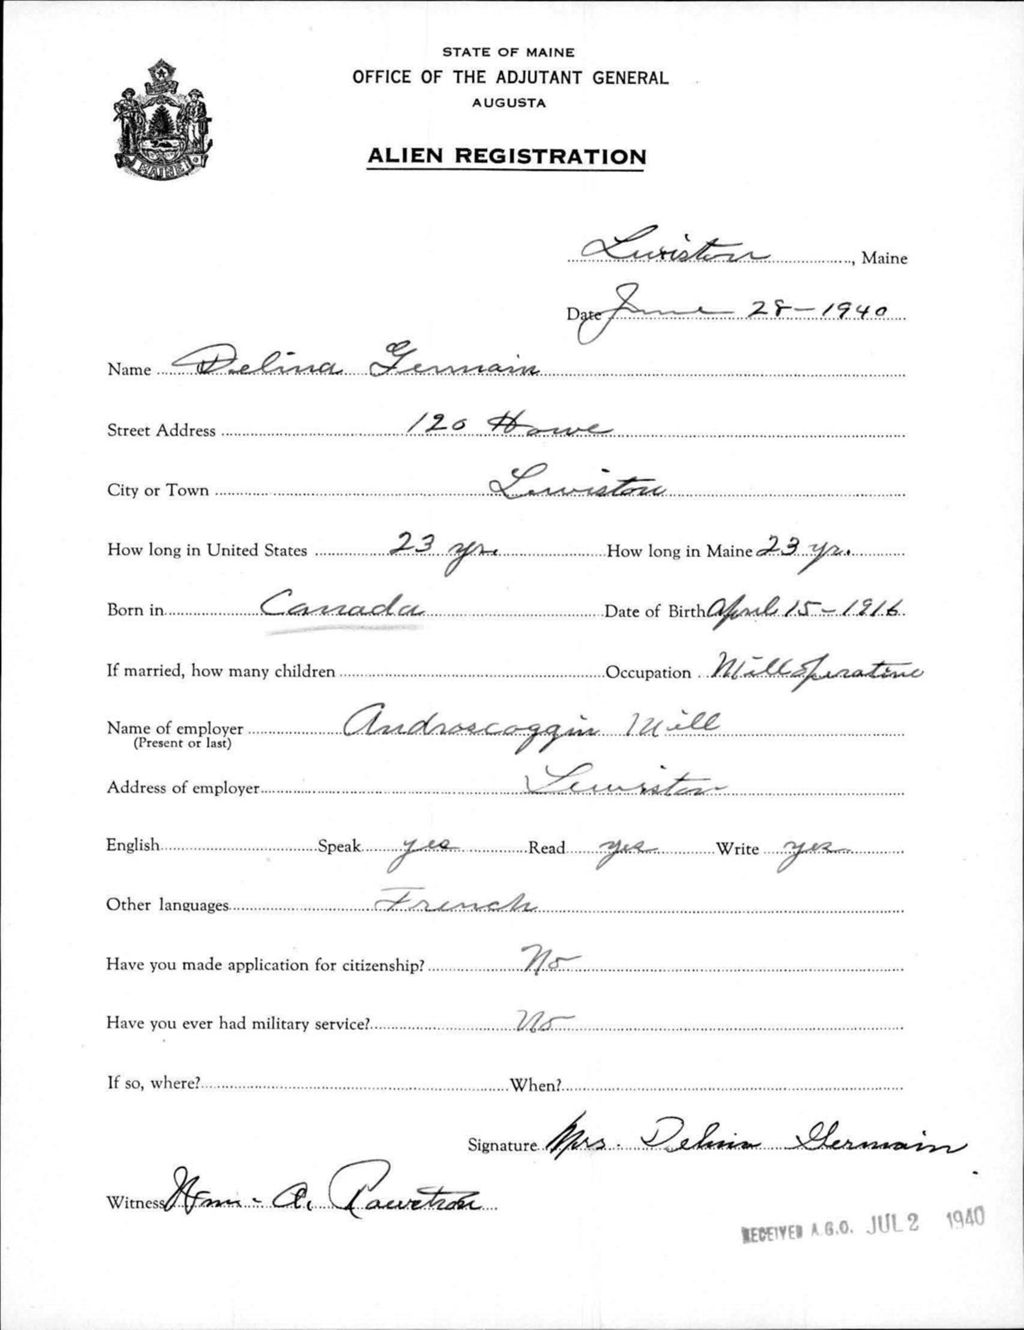 STATE OF MAINE
OFFICE OF THE ADJUTANT GENERAL
AUGUSTA
ALIEN REGISTRATION
MAINE
Lewiston, Maine
Date June 28-1940
Name Delina Germain
Street Address 120 Howe
City or Town Lewiston
How long in United States 23 yr. How long in Maine 23 yr.
Born in Canada Date of Birth April 15-1916
If married, how many children Occupation Mill operative
Name of employer Androscoggin Mill
(Present or last)
Address of employer Lewiston
English Speak yes Read yes Write yes
Other languages French
Have you made application for citizenship? No
Have you ever had military service? No
If so, where? When?
Signature Mrs. Delina Germain
Witness Wm - A.
RECEIVED A.G.O. JUL 2 1940